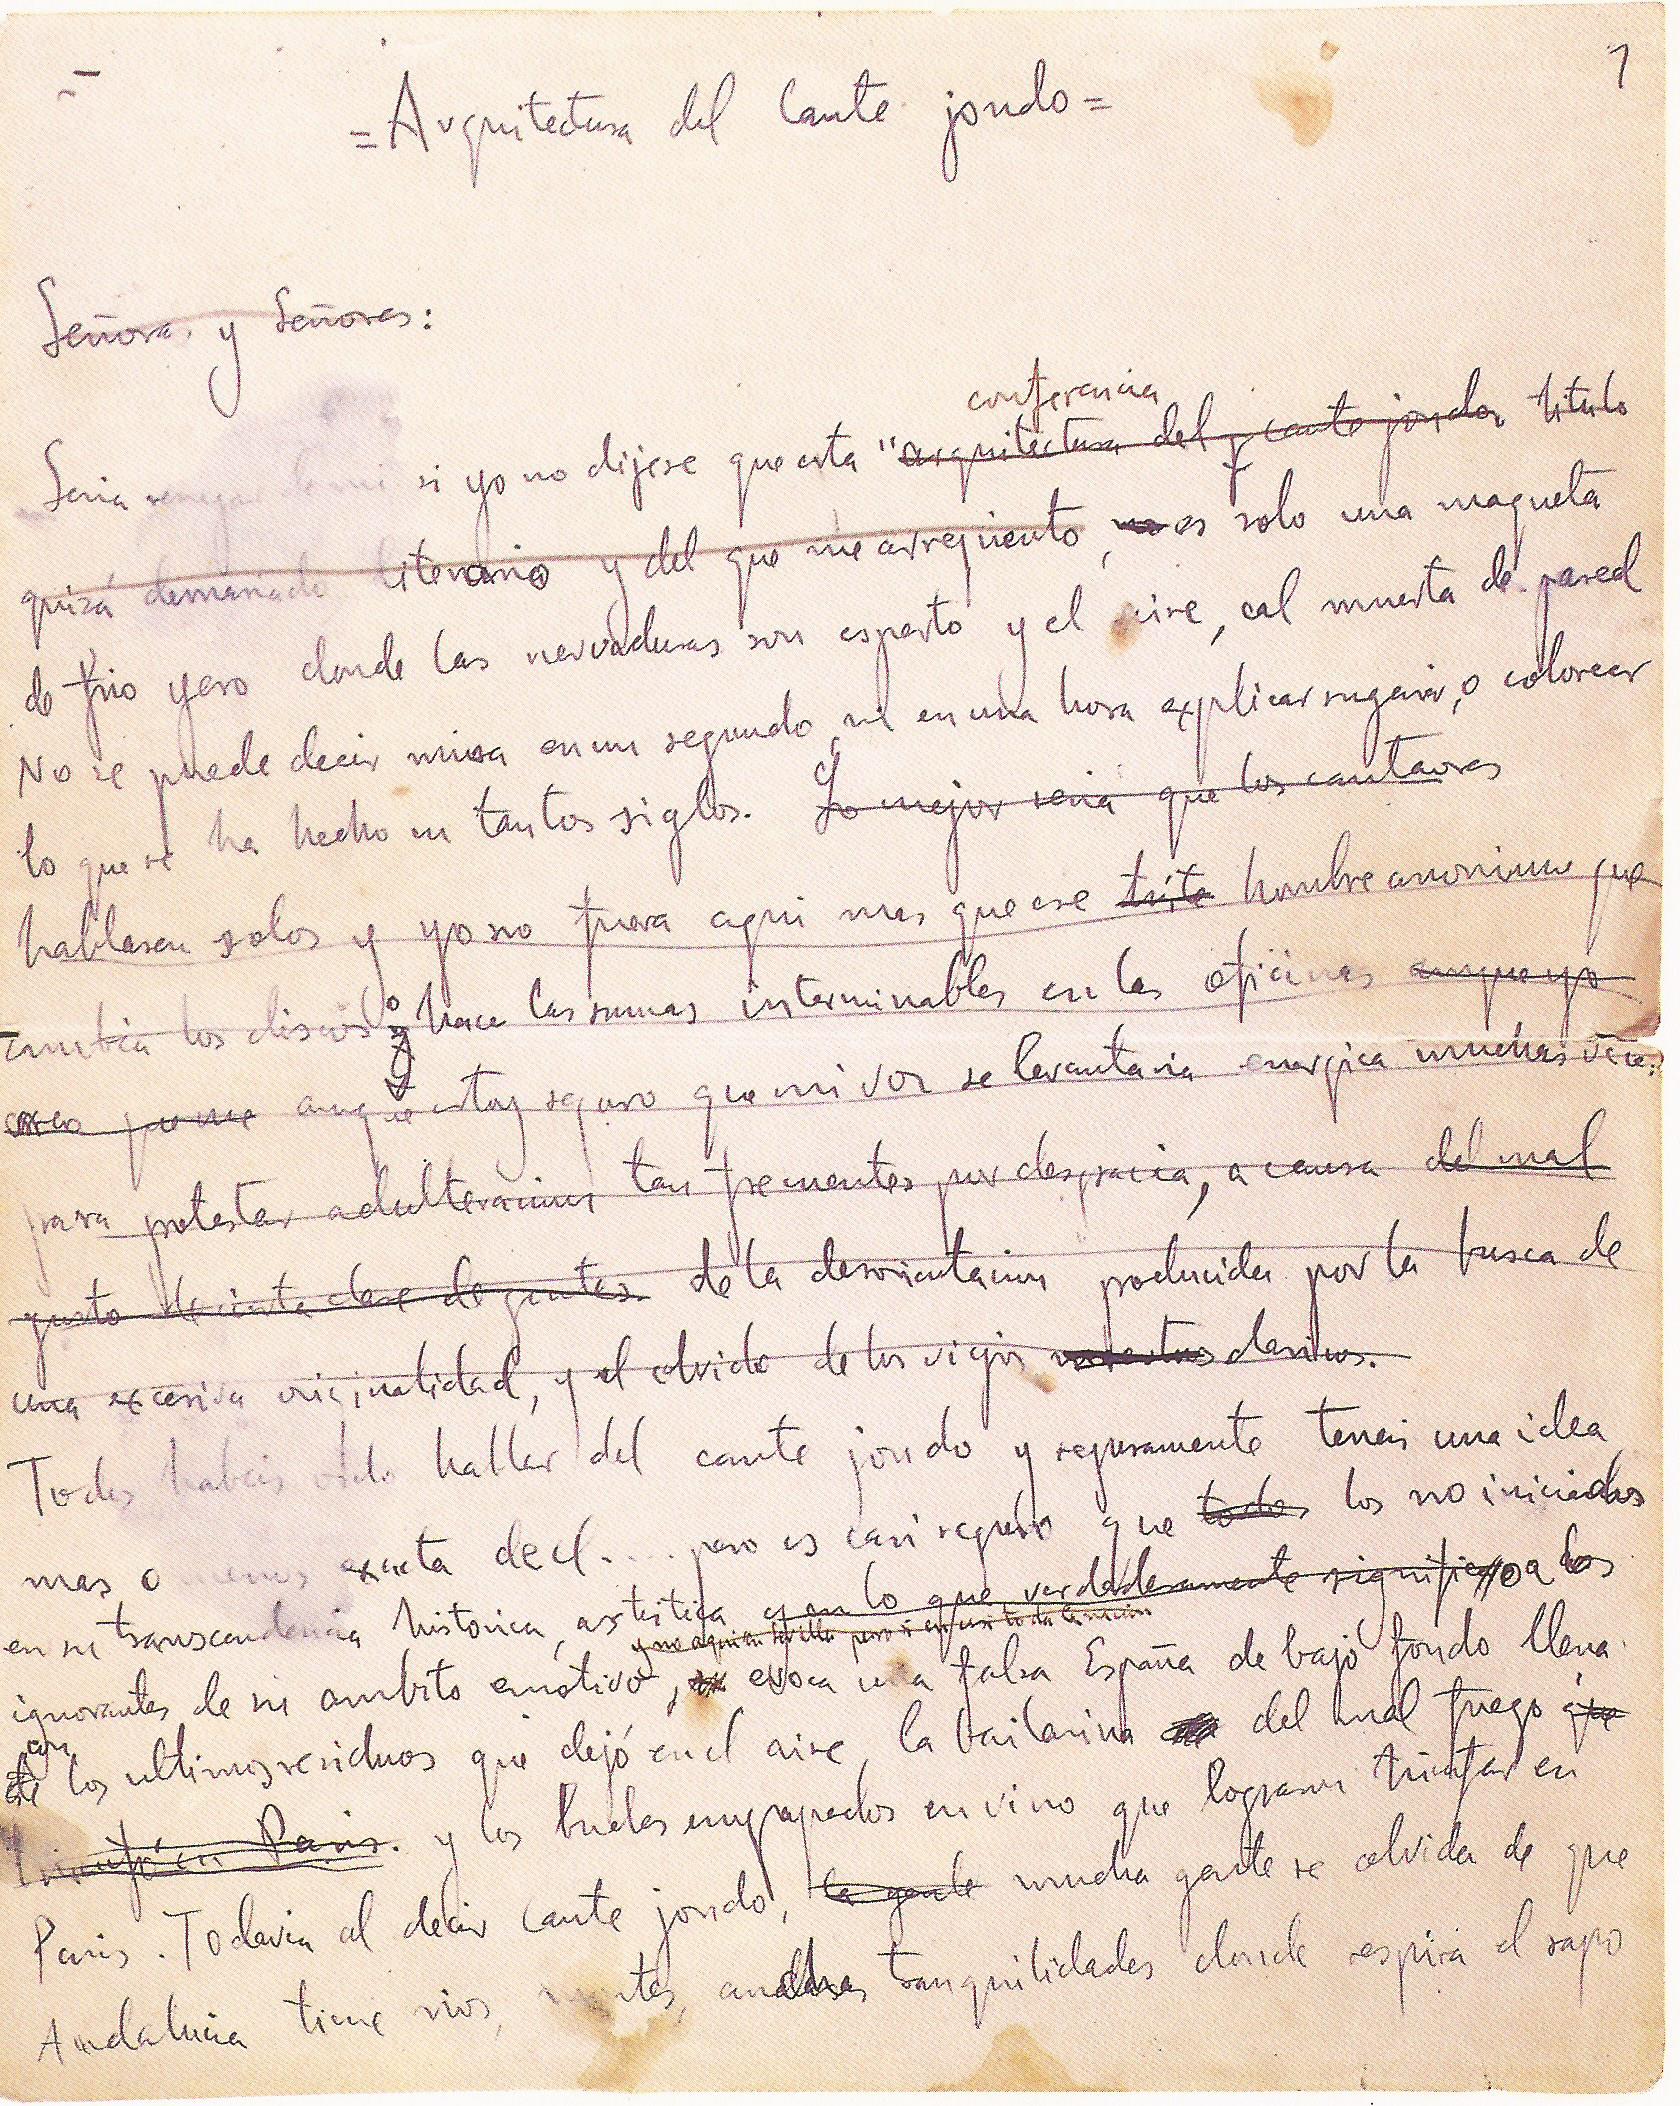 1
= Arquitectura del Cante jondo =
Señoras y Señores:
conferencia
Seria renegar de mi si yo no dijese que esta "arquitectura del cante jondo, titulo
quizá demasiado literario y del que me arrepiento, no es solo una maqueta
de frio yeso donde las nervaduras son esparto y el aire, cal muerta de pared
No se puede decir misa en un segundo ni en una hora explicar sugerir, o colorear
lo que se ha hecho en tantos siglos. Lo mejor seria que los cantaores
hablasen solos y yo no fuera aqui mas que ese triste hombre anonimo que
cambia los discos o hace las sumas interminables en las oficinas aunque yo
creo que me aunque estoy seguro que mi voz se levantaria energica muchas veces
para protestar adulteracions tan frecuentes por desgracia, a causa del mal
gusto de cierta clase de gentes. de la desorientacion producida por la busca de
una excesiva originalidad, y el olvido de los viejos clasicos.
Todos habeis oido hablar del cante jondo y seguramente teneis una idea
mas o menos exacta de el.... pero es casi seguro que todos los no iniciados
en su transcendencia historica, artistica y en lo que verdaderamente significa o a los
y no aqui en Sevilla pero si en casi toda la nacion
ignorantes de su ambito emotivo, evoca una falsa España de bajo fondo llena
con
de los ultimos residuos que dejó en el aire, la bailarina del mal fuego que
triunfó en Paris. y los bucles empapados en vino que logran triunfar en
Paris. Todavia al decir cante jondo, la gente mucha gente se olvida de que
Andalucia tiene rios, montes, anchas tranquilidades donde respira el sapo